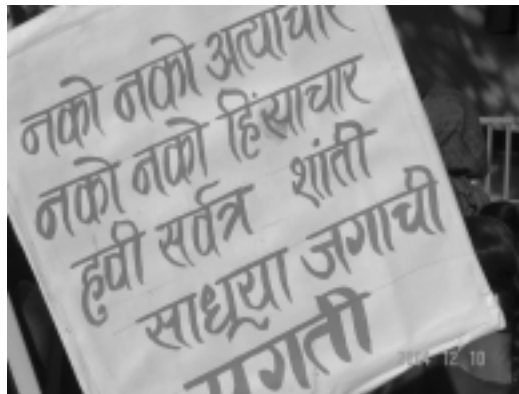 नको नको अत्याचार
नको नको हिंसाचार
हवी सर्वत्र शांती
साधूया जगाची
प्रगती
2004 12 10